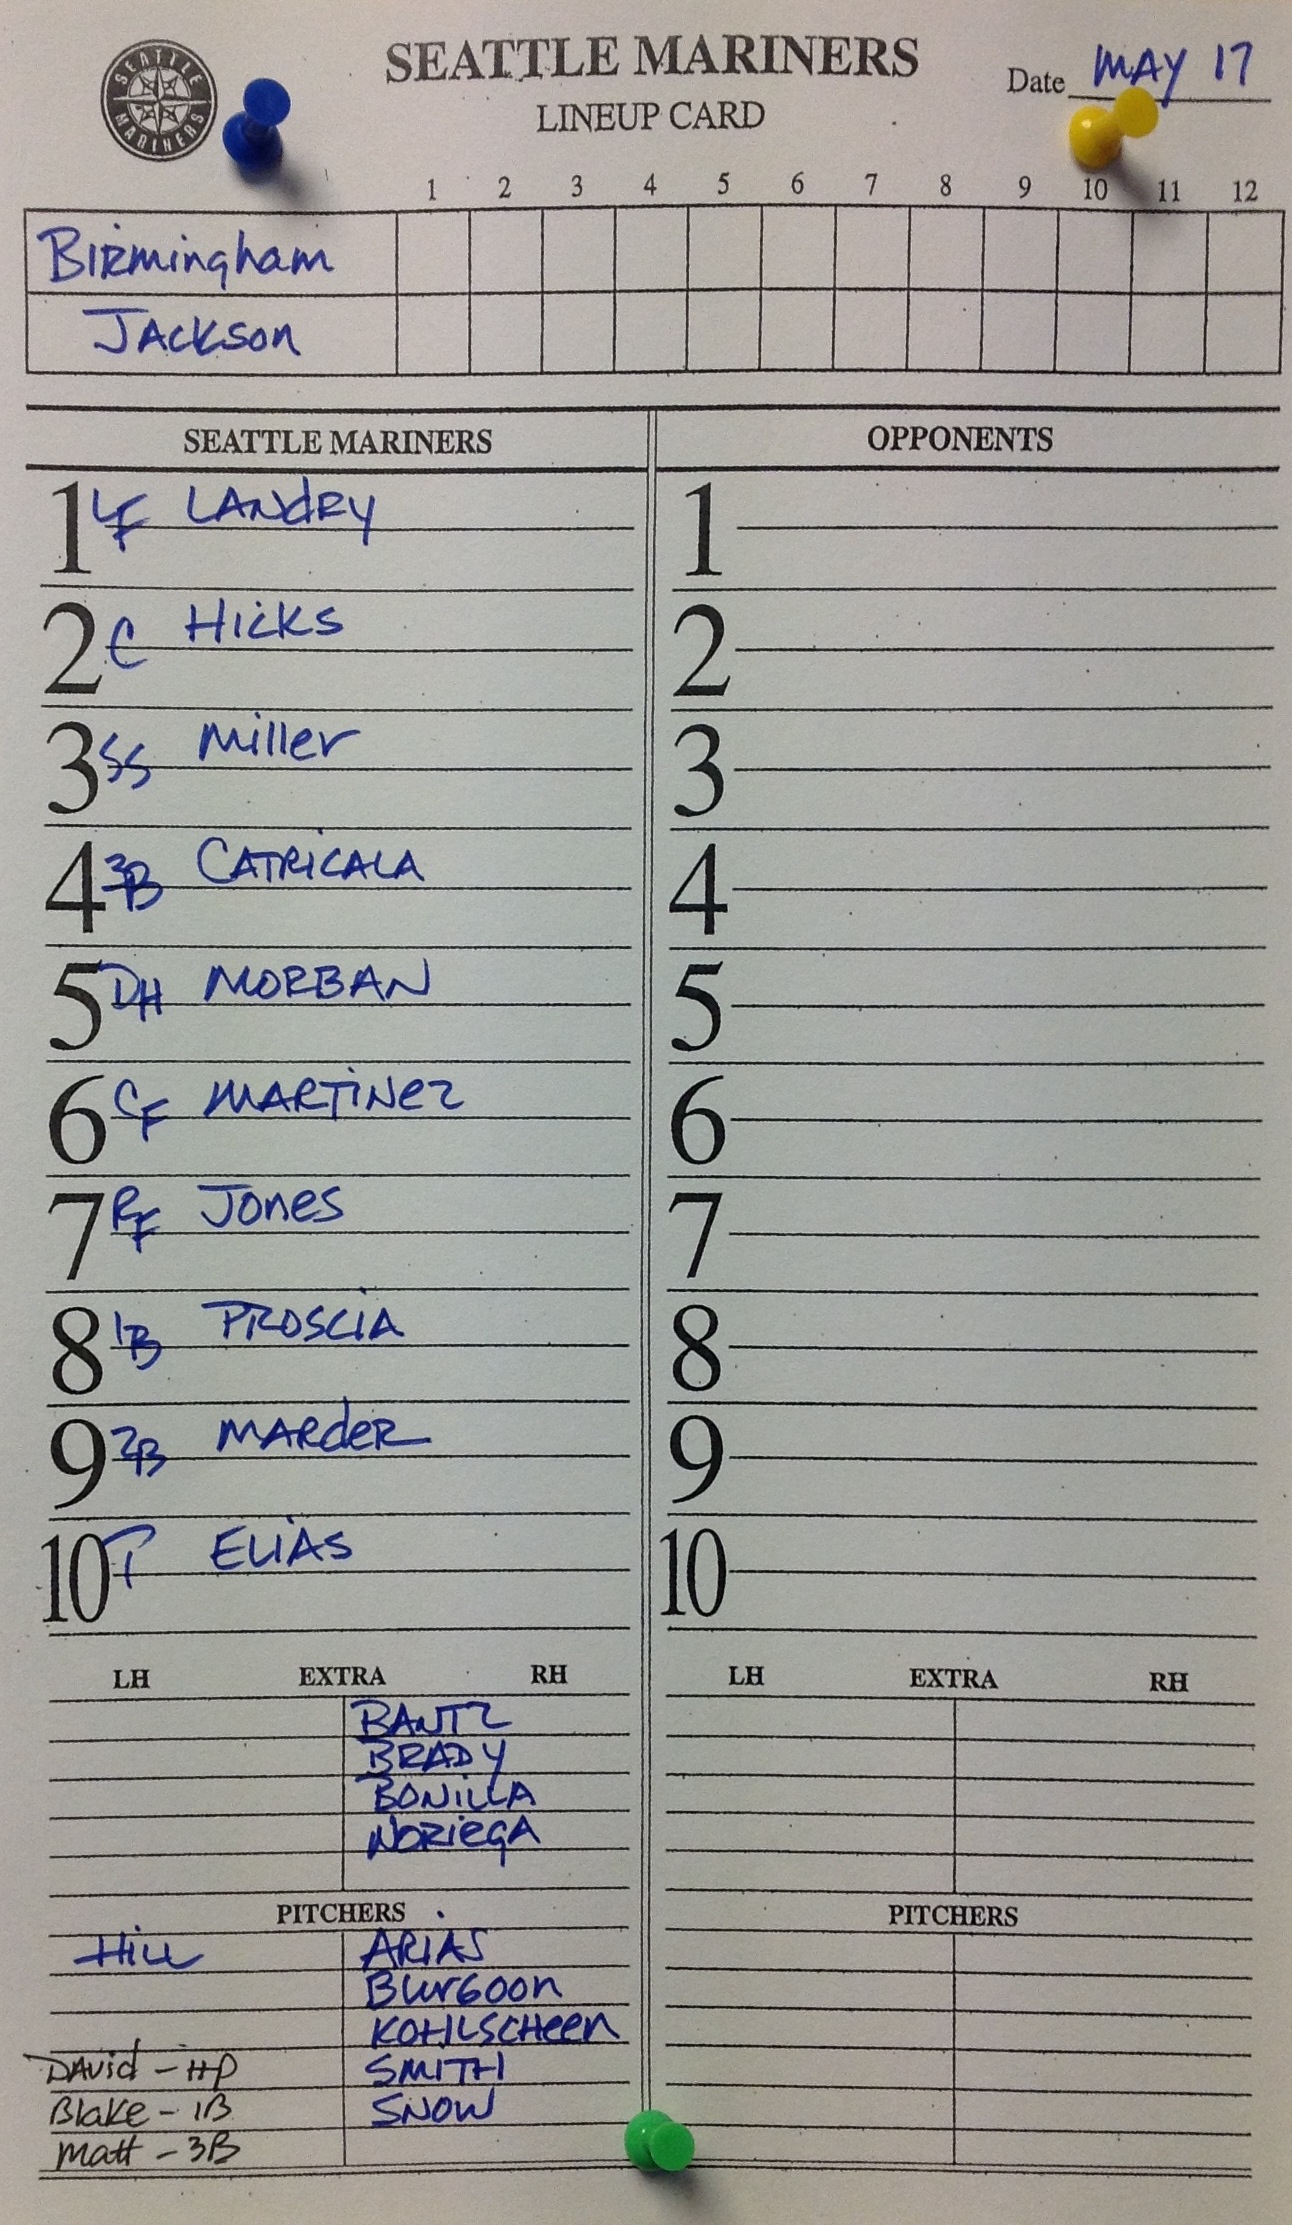 SEATTLE MARINERS
SEATTLE MARINERS
LINEUP CARD
Date MAY 17
1 2 3 4 5 6 7 8 9 10 11 12
Birmingham
Jackson
SEATTLE MARINERS
1 LF Landry
2 C Hicks
3 SS Miller
4 3B Catricala
5 DH Morban
6 CF Martinez
7 RF Jones
8 1B Proscia
9 2B Marder
10 P Elias
LH EXTRA RH
Bantz
Brady
Bonilla
Noriega
PITCHERS
Hill Arias
Burgoon
Kohlscheen
David - HP Smith
Blake - 1B Snow
Matt - 3B
OPPONENTS
1
2
3
4
5
6
7
8
9
10
LH EXTRA RH
PITCHERS